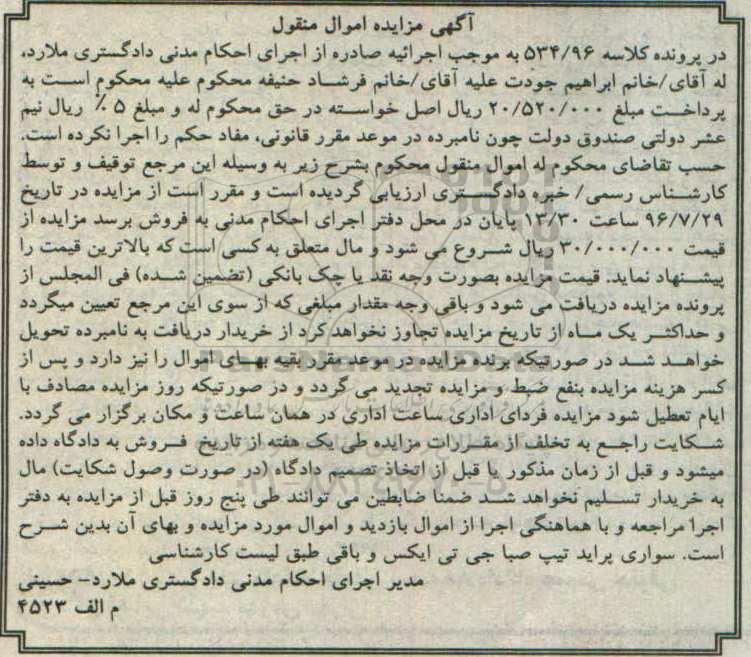 آگهی مزایده اموال منقول
در پرونده کلاسه ۵۳۴/۹۶ به موجب اجرائیه صادره از اجرای احکام مدنی دادگستری ملارد،
له آقای/خانم ابراهیم جودت علیه آقای/خانم فرشاد حنیفه محکوم علیه محکوم است به
پرداخت مبلغ ۲۰/۵۲۰/۰۰۰ ریال اصل خواسته در حق محکوم له و مبلغ ۵ ٪ ریال نیم
عشر دولتی صندوق دولت چون نامبرده در موعد مقرر قانونی، مفاد حکم را اجرا نکرده است.
حسب تقاضای محکوم له اموال منقول محکوم بشرح زیر به وسیله این مرجع توقیف و توسط
کارشناس رسمی/ خبره دادگستری ارزیابی گردیده است و مقرر است از مزایده در تاریخ
۹۶/۷/۲۹ ساعت ۱۳/۳۰ پایان در محل دفتر اجرای احکام مدنی به فروش برسد مزایده از
قیمت ۳۰/۰۰۰/۰۰۰ ریال شروع می شود و مال متعلق به کسی است که بالاترین قیمت را
پیشنهاد نماید. قیمت مزایده بصورت وجه نقد یا چک بانکی (تضمین شده) فی المجلس از
پرونده مزایده دریافت می شود و باقی وجه مقدار مبلغی که از سوی این مرجع تعیین میگردد
و حداکثر یک ماه از تاریخ مزایده تجاوز نخواهد کرد از خریدار دریافت به نامبرده تحویل
خواهد شد در صورتیکه برنده مزایده در موعد مقرر بقیه بهای اموال را نیز دارد و پس از
کسر هزینه مزایده بنفع ضبط و مزایده تجدید می گردد و در صورتیکه روز مزایده مصادف با
ایام تعطیل شود مزایده فردای اداری ساعت اداری در همان ساعت و مکان برگزار می گردد.
شکایت راجع به تخلف از مقررات مزایده طی یک هفته از تاریخ فروش به دادگاه داده
میشود و قبل از زمان مذکور یا قبل از اتخاذ تصمیم دادگاه (در صورت وصول شکایت) مال
به خریدار تسلیم نخواهد شد ضمنا ضابطین می توانند طی پنج روز قبل از مزایده به دفتر
اجرا مراجعه و با هماهنگی اجرا از اموال بازدید و اموال مورد مزایده و بهای آن بدین شرح
است. سواری پراید تیپ صبا جی تی ایکس و باقی طبق لیست کارشناسی
مدیر اجرای احکام مدنی دادگستری ملارد- حسینی
م الف ۴۵۲۳